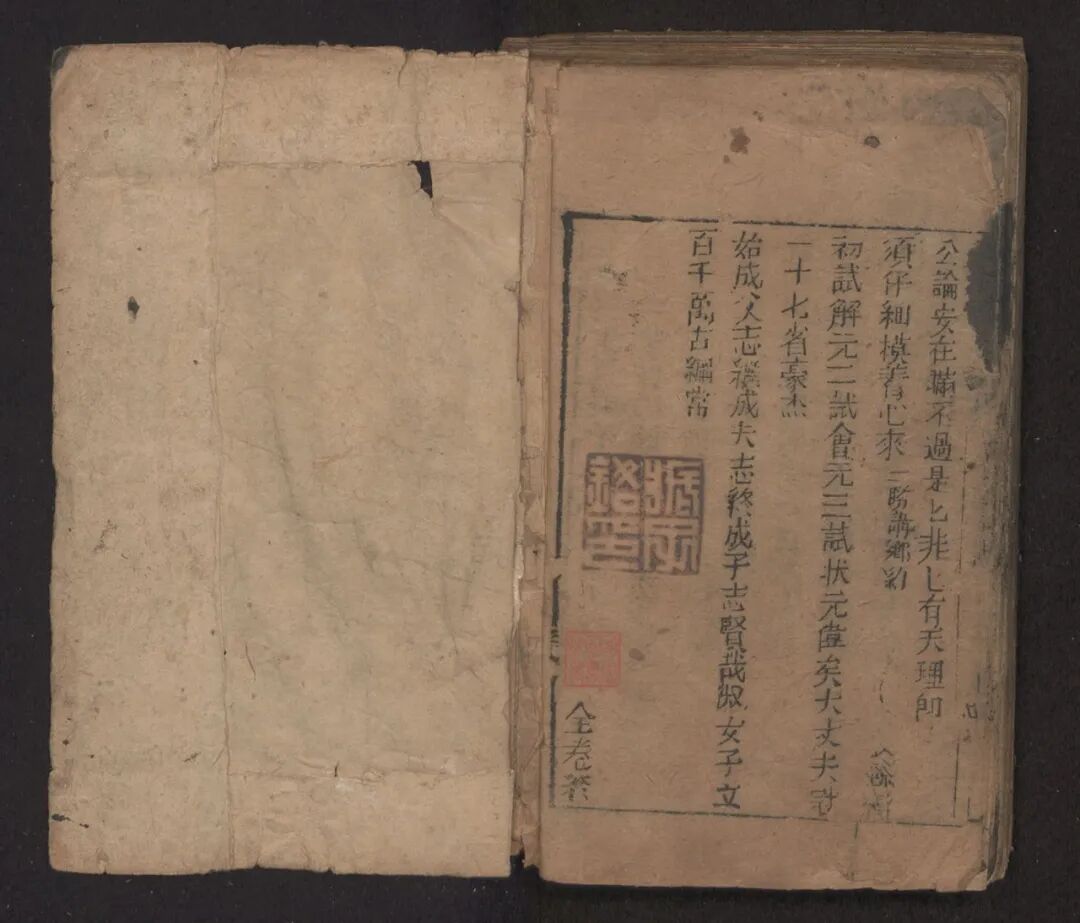 公論安在瞞不過是匕非匕有天理即
須仔細模着心來
初試解元二試會元三試狀元偉矣大丈夫
一十七省豪杰
始成父志継成夫志終成子志賢哉淑女子立
百千萬古綱常
全卷終